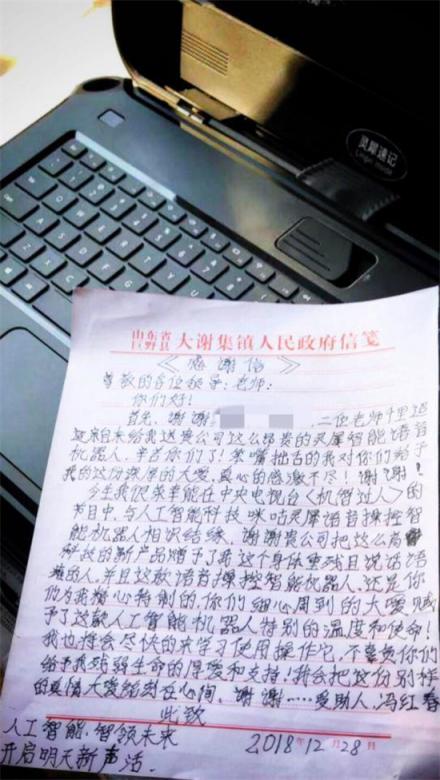 灵犀速记
山东省
巨野县
大谢集镇人民政府信笺
《感谢信》
尊敬的各位领导:老师:
你们好!
首先,谢谢
,二位老师千里迢
迢亲自来给我送贵公司这么昂贵的灵犀智能语音
机器人,辛苦你们了!笨嘴拙舌的我对你们给予
我的这份深厚的大爱,真心的感激不尽!谢谢!
今生我很荣幸能在中央电视台《机智过人》的
节目中,与人工智能科技咪咕灵犀语音操控智
能机器人相识结缘,谢谢贵公司把这么高
科技的新产品赠予了我这个身体重残且说话语
难的人,并且这款语音操控智能机器人,还是你
们为我精心特制的,你们细心周到的大爱赋
予了这款人工智能机器人特别的温度和使命!
我也将会尽快的来学习使用操作它,不辜负你们
给予我残弱生命的厚爱和支持!我会把这份别样
的真情大爱铭刻在心间,谢谢……受助人,冯红春
此致
人工智能,智领未来
2018年12月28日
开启明天新声活.